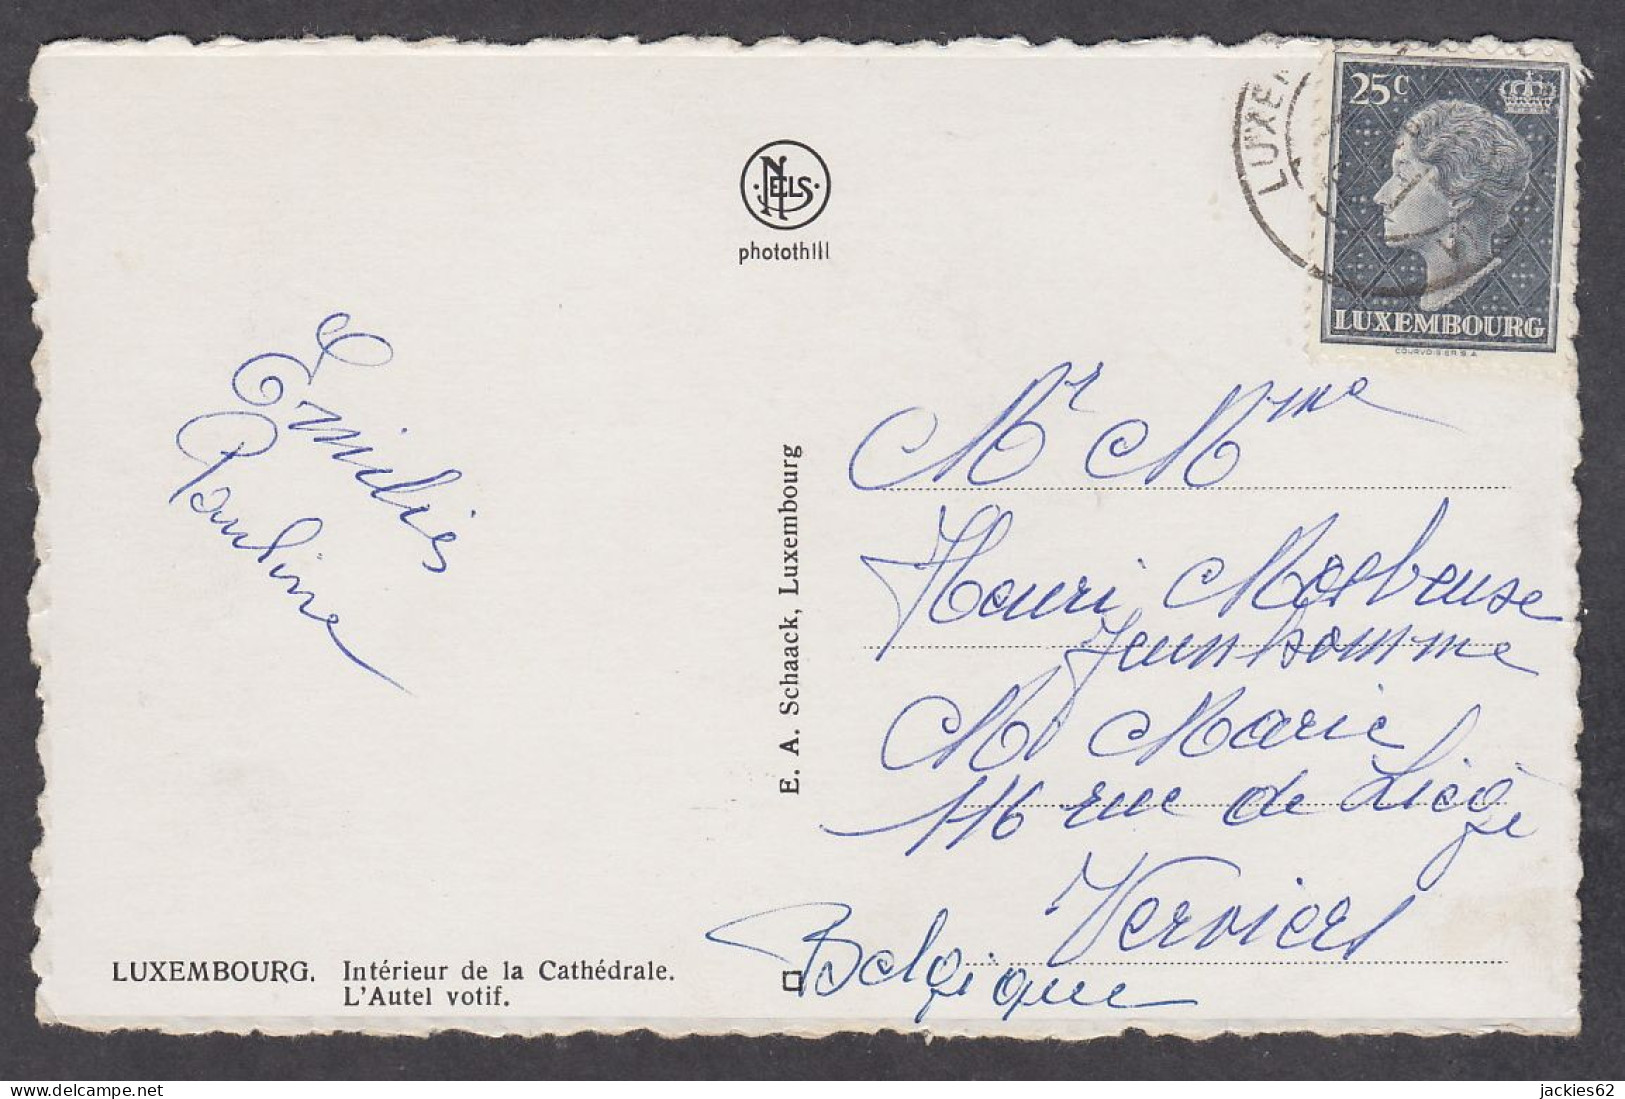 LUXEM
25C
LUXEMBOURG
COURVOISIER S.A.
NELS
photothill
Emilie
Pauline
E. A. Schaack, Luxembourg
Mr Mme
Henri
Jeunhomme
M Marie
116 rue de Liège
Verviers
Belgique
LUXEMBOURG. Intérieur de la Cathédrale.
L'Autel votif.
jackies62